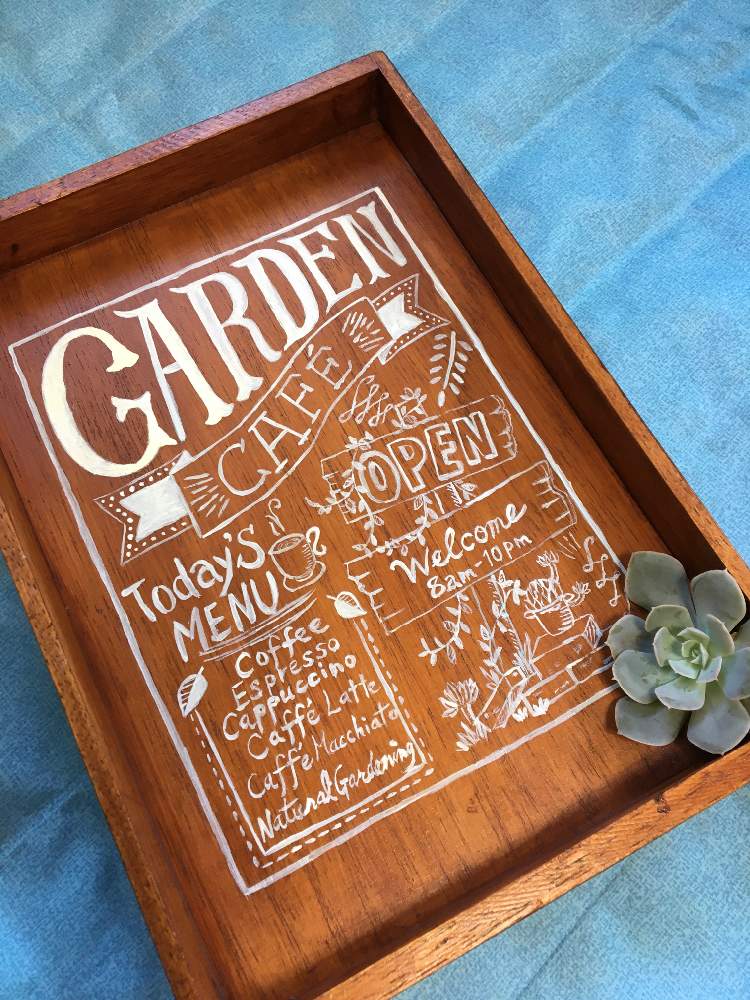 GARDEN
CAFÉ
OPEN
Welcome
8am-10pm
Today's
MENU
Coffee
Espresso
Cappuccino
Caffé Latte
Caffé Macchiato
Natural Gardening